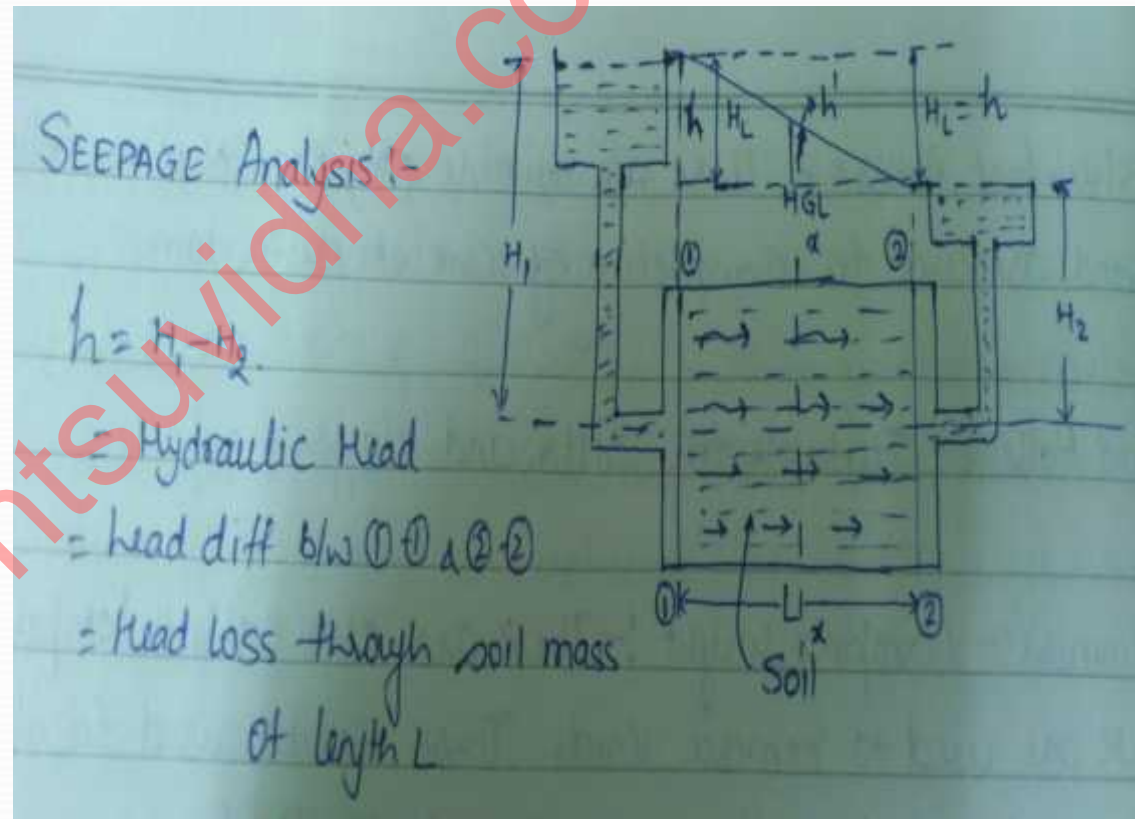 SEEPAGE Analysis:-
h = H1-H2.
= Hydraulic Head
= head diff b/w ①① & ②②
= Head loss through soil mass
of length L
H1
h
HL
h'
HL = h
HGL
x
①
②
H2
①
L
②
x
Soil
ntsuvidha.co